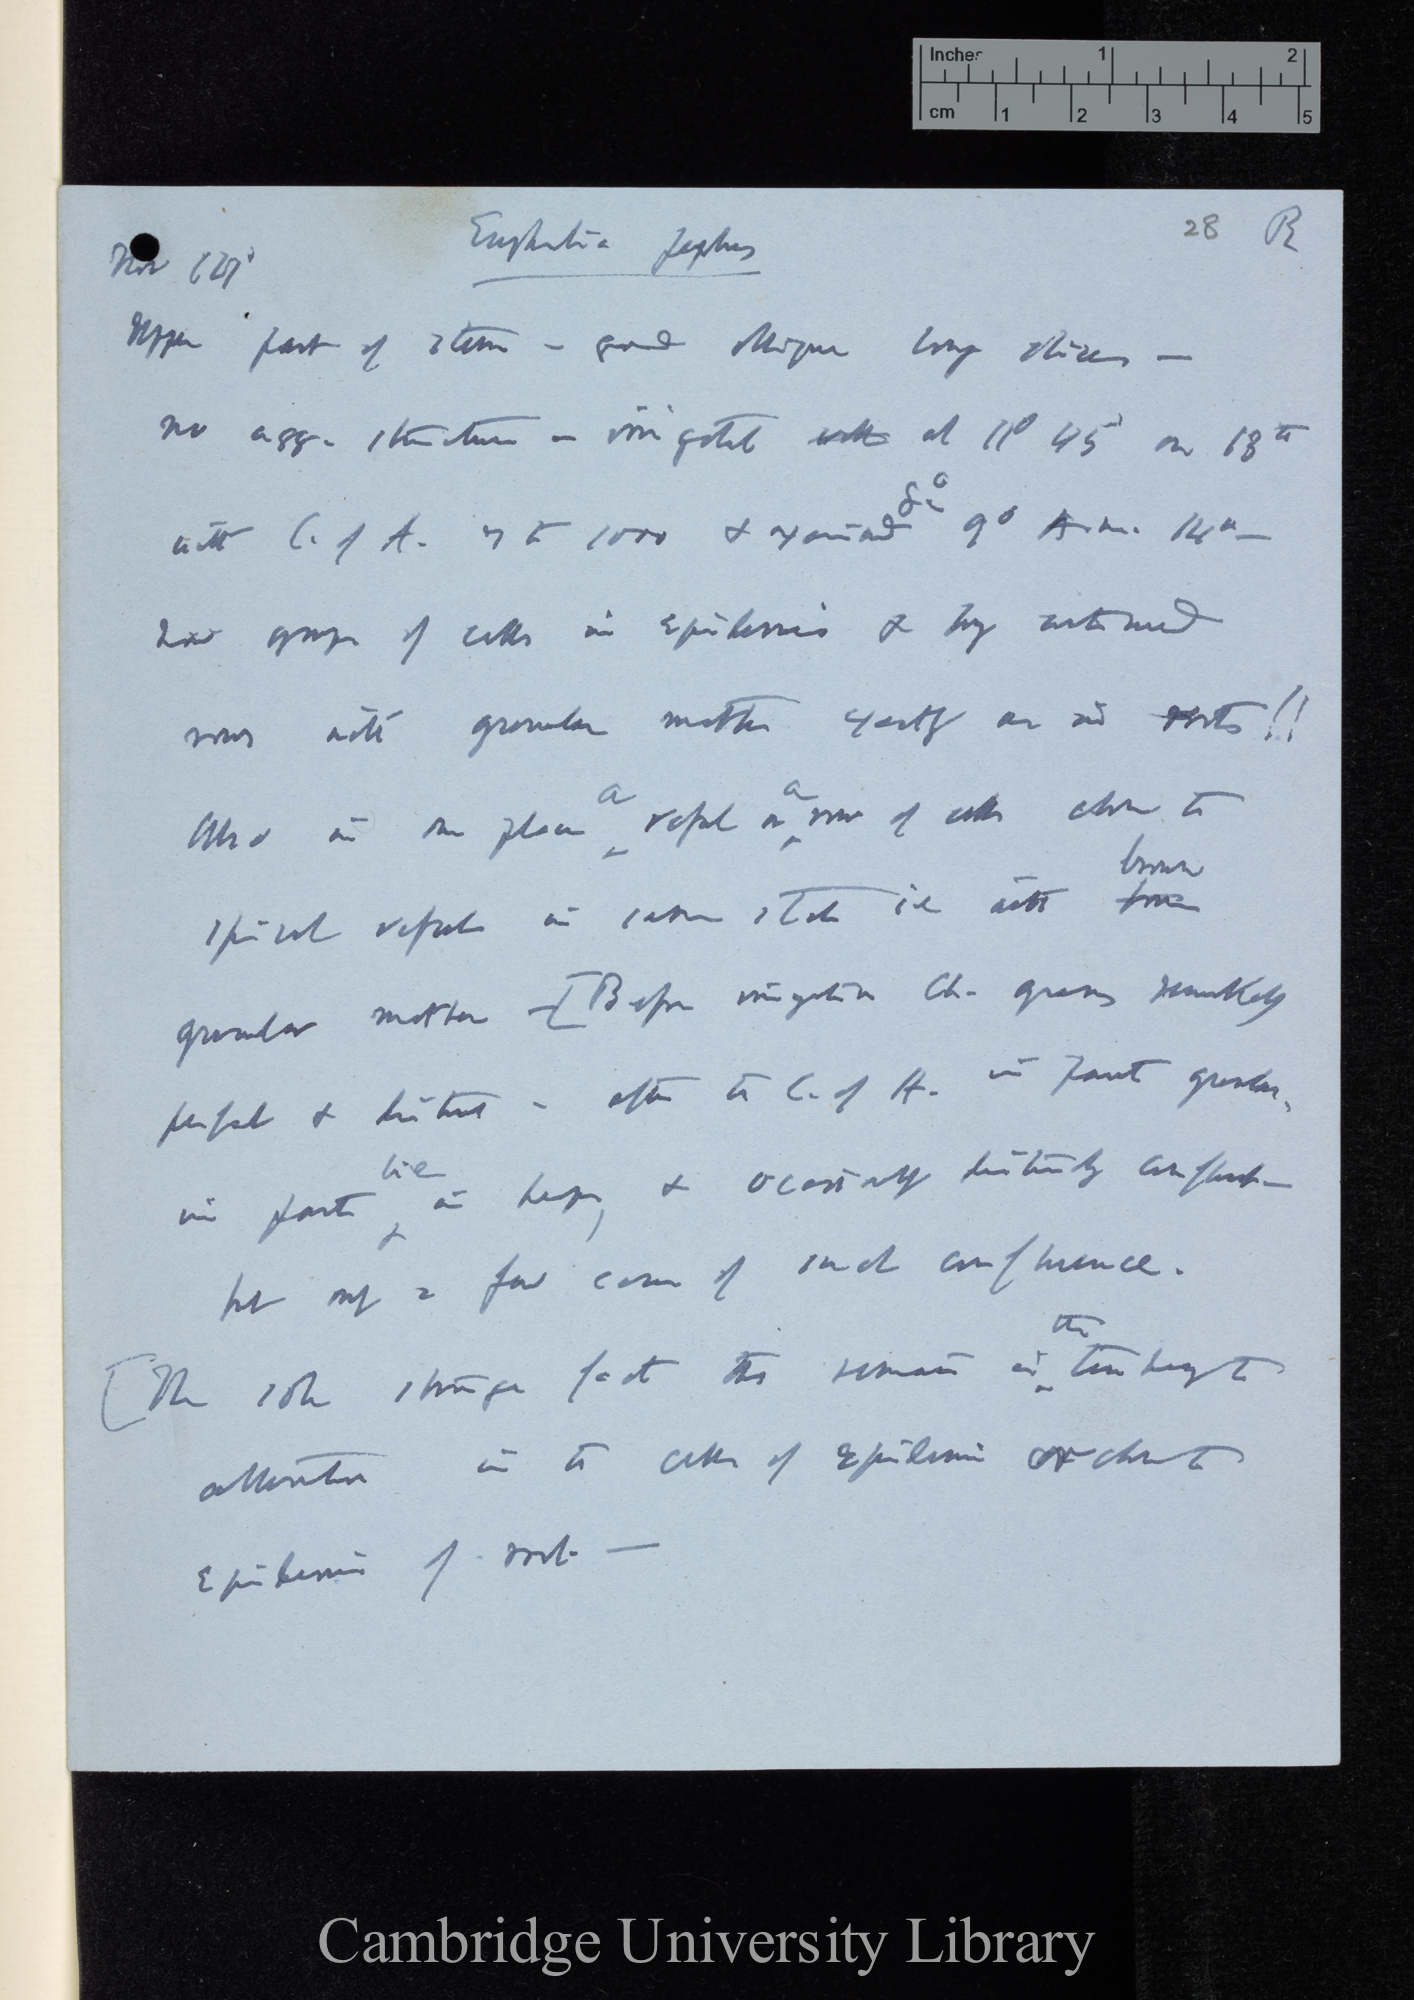 Inches 1 2
cm 1 2 3 4 5
28 R
Euphorbia peplus
Nov
Upper part of stem — good oblique long slices —
no agg. structure — irrigated at 11° 45' on 13th
with C. of A. 7 to 1000 & examined 9° A.m. 14th —
groups of cells in Epidermis &
rows with granular matter exactly as in roots!!
Also in one place a vessel or a row of cells close to
spiral vessels in same state i.e. with brown
granular matter — [Before irrigation Ch. grains remarkably
perfect & distinct — after the C. of A. in part granular,
in part lie in heaps, & occasionally distinctly confluent —
but only a few cases of such confluence.
[The sole strange fact thus remains in the tendency to
alteration in the cells of Epidermis or close to
Epidermis of root —
Cambridge University Library